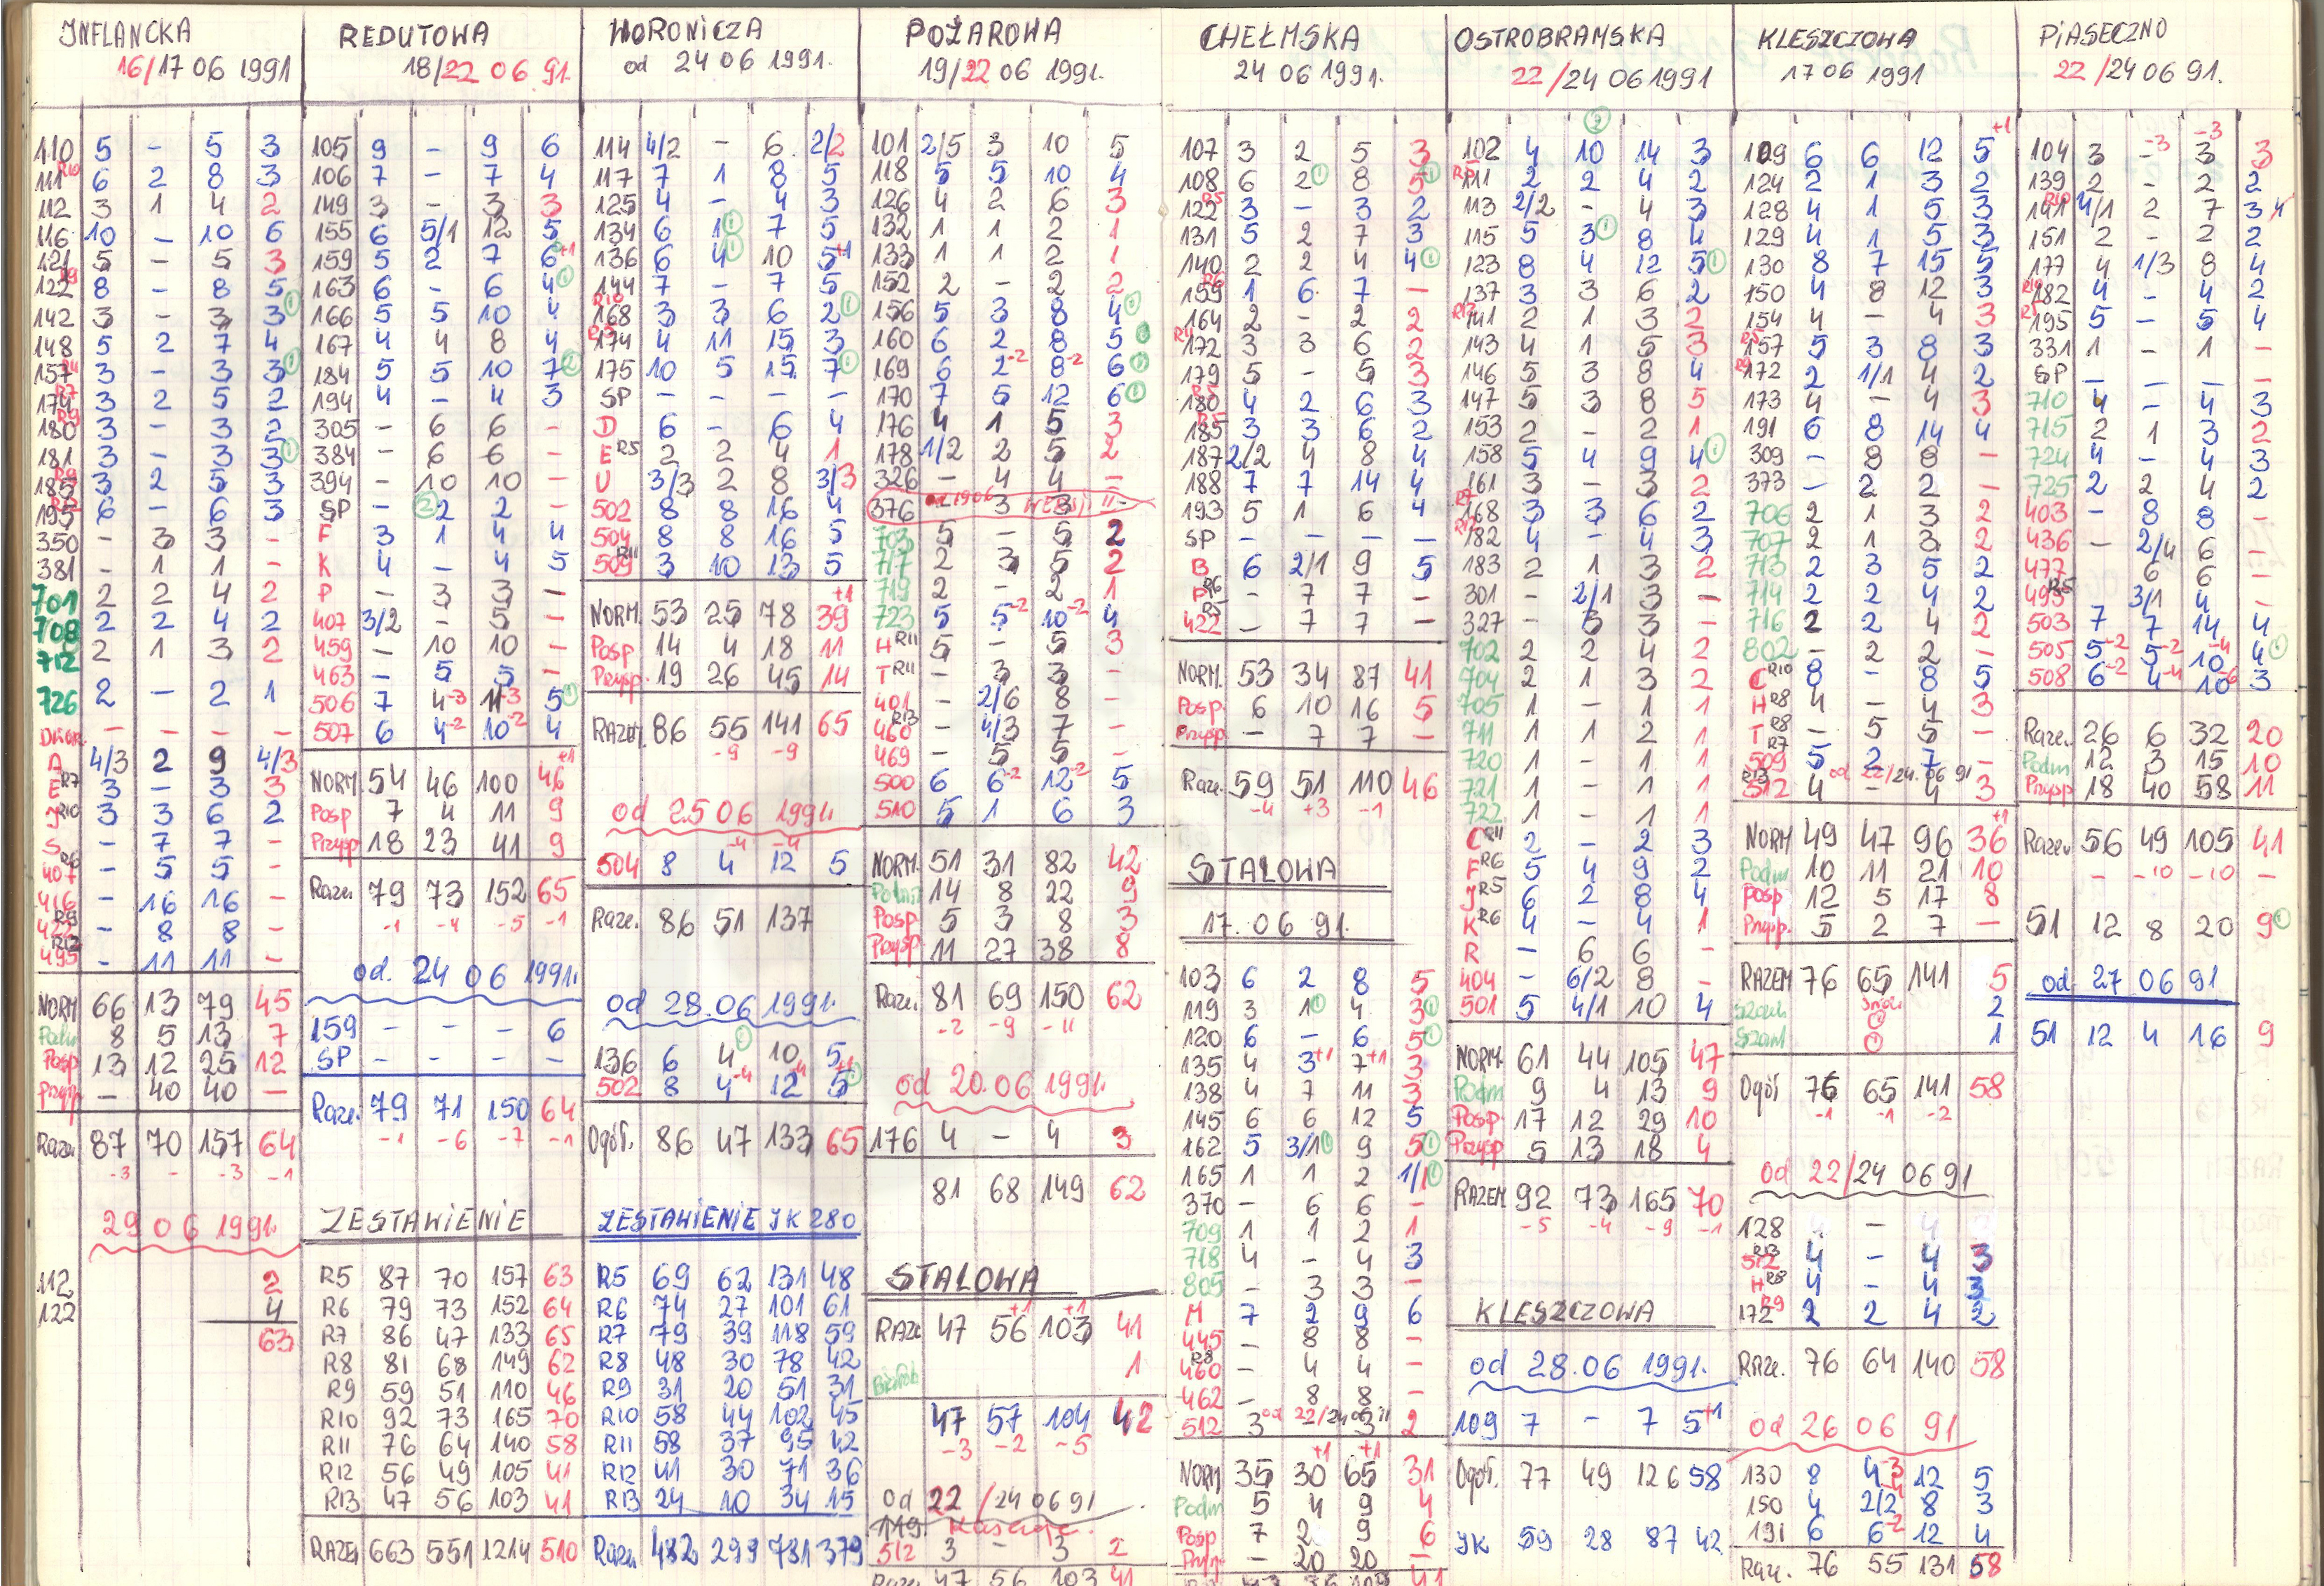 INFLANCKA
16/17 06 1991
110 5 - 5 3
111 R10 6 2 8 3
112 3 1 4 2
116 10 - 10 6
121 5 - 5 3
122 R9 8 - 8 5 ①
142 3 - 3 3
148 5 2 7 4
157 R11 3 - 3 3 ①
174 R7 3 2 5 2
180 R9 3 - 3 2
181 3 - 3 3 ①
185 R9 3 2 5 3
195 R12 6 - 6 3
350 - 3 3 -
381 - 1 1 -
701 2 2 4 2
708 2 2 4 2
712 2 1 3 2
726 2 - 2 1
- - - -
A 4/3 2 9 4/3
E R7 3 - 3 3
J R10 3 3 6 2
S - 7 7 -
407 R6 - 5 5 -
416 - 16 16 -
422 R9 - 8 8 -
495 R12 - 11 11 -
NORM 66 13 79 45
Podm 8 5 13 7
Posp 13 12 25 12
Przysp - 40 40 -
Raze. 87 70 157 64
-3 - -3 -1
29 06 1991.
112 2
122 4
63
REDUTOWA
18/22 06 91.
105 9 - 9 6
106 7 - 7 4
149 3 - 3 3
155 6 5/1 12 5
159 5 2 7 6 +1
163 6 - 6 4 ①
166 5 5 10 4
167 4 4 8 4
184 5 5 10 7 ②
194 4 - 4 3
305 - 6 6 -
384 - 6 6 -
394 - 10 10 -
SP - ② 2 2 -
F 3 1 4 4
K 4 - 4 5
P - 3 3 -
407 3/2 - 5 -
459 - 10 10 -
463 - 5 5 -
506 7 4-3 11-3 5 ①
507 6 4-2 10-2 4
NORM 54 46 100 46 +1
Posp 7 4 11 9
Przysp 18 23 41 9
Raze. 79 73 152 65
-1 -4 -5 -1
od. 24 06 1991.
159 - - - 6
SP - - - -
Raze. 79 71 150 64
-1 -6 -7 -1
ZESTAWIENIE
R5 87 70 157 63
R6 79 73 152 64
R7 86 47 133 65
R8 81 68 149 62
R9 59 51 110 46
R10 92 73 165 70
R11 76 64 140 58
R12 56 49 105 41
R13 47 56 103 41
RAZEM 663 551 1214 510
WORONICZA
od 24 06 1991.
114 4/2 - 6 2/2
117 7 1 8 5
125 4 - 4 3
134 6 1 ① 7 5
136 6 4 ① 10 5+1
144 7 - 7 5
168 R10 3 3 6 2 ①
174 R5 4 11 15 3
175 10 5 15 7 ①
SP - - - -
D 6 - 6 4
E R5 2 2 4 1
U 3/3 2 8 3/3
502 8 8 16 4
504 8 8 16 5
509 R11 3 10 13 5
+1
NORM. 53 25 78 39
Posp 14 4 18 11
Przysp. 19 26 45 14
RAZEM. 86 55 141 65
-9 -9
od 25 06 1991.
-4 -4
504 8 4 12 5
Raze. 86 51 137
od 28.06 1991.
136 6 4 ① 10 5
502 8 4-4 12-4 5 ①
Ogół. 86 47 133 65
ZESTAWIENIE JK 280
R5 69 62 131 48
R6 74 27 101 61
R7 79 39 118 59
R8 48 30 78 42
R9 31 20 51 31
R10 58 44 102 45
R11 58 37 95 42
R12 41 30 71 36
R13 24 10 34 15
Raze. 482 299 781 379
POŻAROWA
19/22 06 1991.
101 2/5 3 10 5
118 5 5 10 4
126 4 2 6 3
132 1 1 2 1
133 1 1 2 1
152 2 - 2 2
156 5 3 8 4 ①
160 6 2 8 5
169 6 2-2 8-2 6 ①
170 7 5 12 6 ①
176 4 1 5 3
178 1/2 2 5 2
326 - 4 4 -
376 3 3 -
703 5 - 5 2
717 2 3 5 2
719 2 - 2 1
723 5 5-2 10-2 4
H R11 5 - 5 3
T R11 - 3 3 -
401 - 2/6 8 -
460 R13 - 4/3 7 -
469 - 5 5 -
500 6 6-2 12-2 5
510 5 1 6 3
NORM. 51 31 82 42
Podm 14 8 22 9
Posp 5 3 8 3
Przysp 11 27 38 8
Raze. 81 69 150 62
-2 -9 -11
od 20.06 1991.
176 4 - 4 3
81 68 149 62
STALOWA
RAZE 47 56+1 103+1 41
1
47 57 104 42
-3 -2 -5
od 22/24 06 91
512 3 - 3 2
Raze. 47 56 103 41
CHEŁMSKA
24 06 1991.
107 3 2 5 3
108 6 2 ① 8 5 ①
122 R5 3 - 3 2
131 5 2 7 3
140 2 2 4 4 ①
159 R6 1 6 7 -
164 2 - 2 2
172 R11 3 3 6 2
179 5 - 5 3
180 R5 4 2 6 3
185 R5 3 3 6 2
187 2/2 4 8 4
188 7 7 14 4
193 5 1 6 4
SP - - - -
B 6 2/1 9 5
P R6 - 7 7 -
422 R5 - 7 7 -
NORM. 53 34 87 41
Posp. 6 10 16 5
Przysp. - 7 7 -
Raze. 59 51 110 46
-4 +3 -1
STALOWA
17. 06 91.
103 6 2 8 5
119 3 1 ① 4 3 ①
120 6 - 6 5 ①
135 4 3+1 7+1 3
138 4 7 11 3
145 6 6 12 5
162 5 3/1 ① 9 5 ①
165 1 1 2 1/1 ①
370 - 6 6 -
709 1 1 2 1
718 4 - 4 3
805 - 3 3 -
M 7 2 9 6
445 - 8 8 -
460 R8 - 4 4 -
462 - 8 8 -
512 3 od 22/24 06 91 3 2
+1 +1
NORM 35 30 65 31
Podm 5 4 9 4
Posp 7 2 9 6
Przysp - 20 20 -
OSTROBRAMSKA
22/24 06 1991
②
102 4 10 14 3
111 R5 2 2 4 2
113 2/2 - 4 3
115 5 3 ① 8 4
123 8 4 12 5 ①
137 3 3 6 2
141 R12 2 1 3 2
143 4 1 5 3
146 5 3 8 4
147 5 3 8 5
153 2 - 2 1
158 5 4 9 4 ①
161 3 - 3 2
168 R7 3 3 6 2
182 R12 4 - 4 3
183 2 1 3 2
301 - 2/1 3 -
327 - 3 3 -
702 2 2 4 2
704 2 1 3 2
705 1 - 1 1
711 1 1 2 1
720 1 - 1 1
721 1 - 1 1
722 1 - 1 1
C R11 2 - 2 3
F R6 5 4 9 2
J R5 6 2 8 4
K R6 4 - 4 1
R - 6 6 -
404 - 6/2 8 -
501 5 4/1 10 4
NORM. 61 44 105 47
Podm 9 4 13 9
Posp 17 12 29 10
Przysp 5 13 18 4
RAZEM 92 73 165 70
-5 -4 -9 -1
KLESZCZOWA
od 28.06 1991.
109 7 - 7 5+1
Ogół. 77 49 126 58
JK 59 28 87 42
KLESZCZOWA
17 06 1991
+1
109 6 6 12 5
124 2 1 3 2
128 4 1 5 3
129 4 1 5 3
130 8 7 15 5
150 4 8 12 3
154 4 - 4 3
157 R5 5 3 8 3
172 R9 2 1/1 4 2
173 4 - 4 3
191 6 8 14 4
309 - 8 8 -
373 - 2 2 -
706 2 1 3 2
707 2 1 3 2
713 2 3 5 2
714 2 2 4 2
716 2 2 4 2
802 - 2 2 -
C R10 8 - 8 5
H R8 4 - 4 3
T R8 - 5 5 -
509 R7 5 2 7 -
od 22/24. 06 91
512 R13 4 - 4 3
+1
NORM 49 47 96 36
Podm 10 11 21 10
Posp 12 5 17 8
Przysp. 5 2 7 -
RAZEM 76 65 141 5
2
1
Ogół 76 65 141 58
-1 -1 -2
od 22/24 06 91
128 4 - 4
512 R13 4 - 4 3
H R8 4 - 4 3
172 R9 2 2 4 2
Raze. 76 64 140 58
od 26 06 91
130 8 4-3 12 5
150 4 2/2-4 8 3
191 6 6-2 12 4
Raze. 76 55 131 58
PIASECZNO
22/24 06 91.
-3 -3
104 3 - 3 3
139 2 - 2 2
141 R10 4/1 2 7 3
151 2 - 2 2
177 4 1/3 8 4
182 R10 4 - 4 2
195 R5 5 - 5 4
331 1 - 1 -
SP - - - -
710 4 - 4 3
715 2 1 3 2
724 4 - 4 3
725 2 2 4 2
403 - 8 8 -
436 - 2/4 6 -
477 - 6 6 -
495 R5 3/1 4 -
503 7 7 14 4
505 5-2 5-2 10-4 4 ①
508 6-2 4-4 10-6 3
Raze. 26 6 32 20
Podm 12 3 15 10
Przysp 18 40 58 11
Raze. 56 49 105 41
- -10 -10 -
51 12 8 20 9 ①
od 27 06 91
51 12 4 16 9